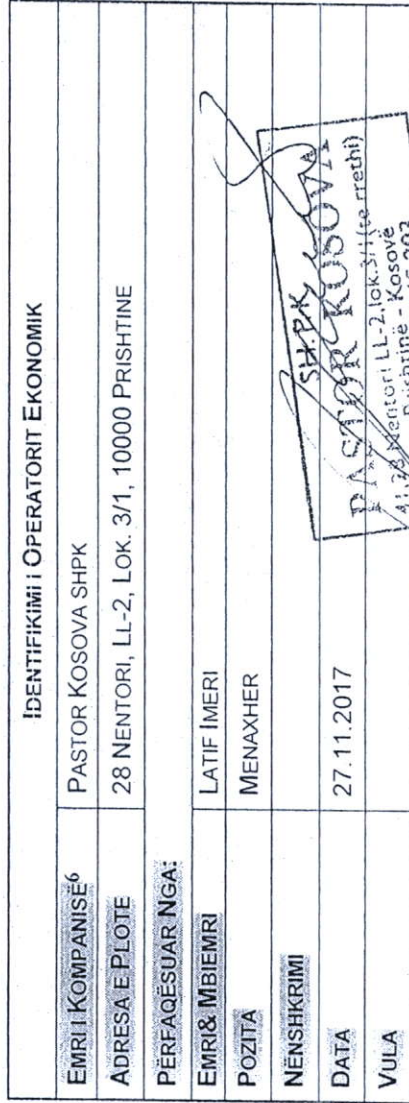 IDENTIFIKIMI I OPERATORIT EKONOMIK
EMRI I KOMPANISË6 PASTOR KOSOVA SHPK
ADRESA E PLOTE 28 NENTORI, LL-2, LOK. 3/1, 10000 PRISHTINE
PËRFAQËSUAR NGA:
EMRI& MBIEMRI LATIF IMERI
POZITA MENAXHER
NËNSHKRIMI
DATA 27.11.2017
VULA
SH.P.K
PASTOR KOSOVA
28 Nentori LL-2,lok.3/1(te rrethi)
Prishtinë - Kosovë